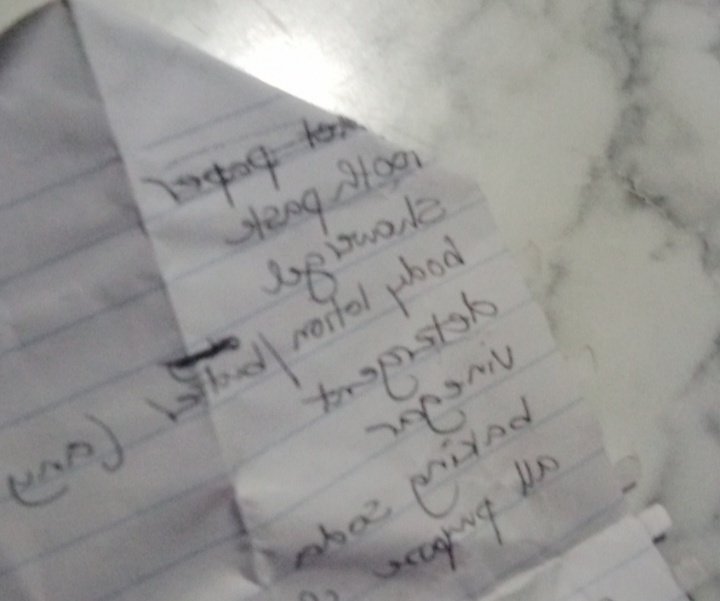 paper
Tooth paste
Shower gel
body lotion / butter (any
detergent
vinegar
baking soda
all purpose